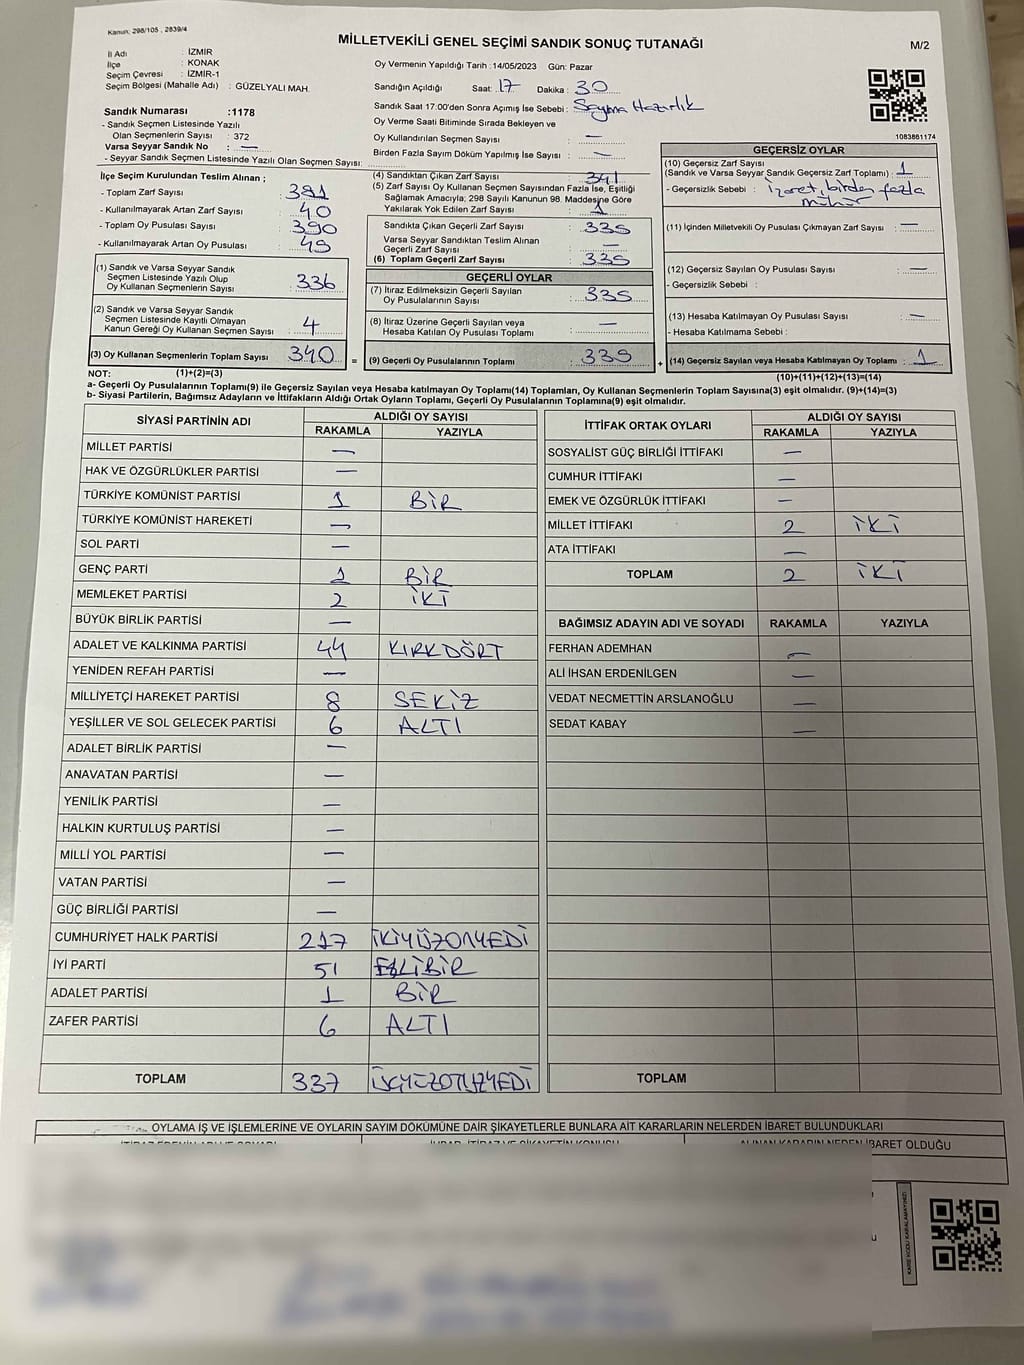 Kanun: 298/105 , 2839/4
MİLLETVEKİLİ GENEL SEÇİMİ SANDIK SONUÇ TUTANAĞI
M/2
İl Adı : İZMİR
İlçe : KONAK
Seçim Çevresi : İZMİR-1
Seçim Bölgesi (Mahalle Adı) : GÜZELYALI MAH.
Oy Vermenin Yapıldığı Tarih :14/05/2023 Gün: Pazar
Sandığın Açıldığı Saat: 17 Dakika : 30
Sandık Saat 17:00'den Sonra Açımış İse Sebebi : Sayıma Hazırlık
Oy Verme Saati Bitiminde Sırada Bekleyen ve
Oy Kullandırılan Seçmen Sayısı : —
Birden Fazla Sayım Döküm Yapılmış İse Sayısı : —
1083861174
Sandık Numarası :1178
- Sandık Seçmen Listesinde Yazılı
Olan Seçmenlerin Sayısı : 372
Varsa Seyyar Sandık No : —
- Seyyar Sandık Seçmen Listesinde Yazılı Olan Seçmen Sayısı:
İlçe Seçim Kurulundan Teslim Alınan ;
- Toplam Zarf Sayısı : 381
- Kullanılmayarak Artan Zarf Sayısı : 40
- Toplam Oy Pusulası Sayısı : 390
- Kullanılmayarak Artan Oy Pusulası : 49
(1) Sandık ve Varsa Seyyar Sandık
Seçmen Listesinde Yazılı Olup
Oy Kullanan Seçmenlerin Sayısı : 336
(2) Sandık ve Varsa Seyyar Sandık
Seçmen Listesinde Kayıtlı Olmayan
Kanun Gereği Oy Kullanan Seçmen Sayısı : 4
(3) Oy Kullanan Seçmenlerin Toplam Sayısı : 340
(1)+(2)=(3)
(4) Sandıktan Çıkan Zarf Sayısı : 341
(5) Zarf Sayısı Oy Kullanan Seçmen Sayısından Fazla İse, Eşitliği
Sağlamak Amacıyla; 298 Sayılı Kanunun 98. Maddesine Göre
Yakılarak Yok Edilen Zarf Sayısı : 1
Sandıkta Çıkan Geçerli Zarf Sayısı : 335
Varsa Seyyar Sandıktan Teslim Alınan
Geçerli Zarf Sayısı : —
(6) Toplam Geçerli Zarf Sayısı : 335
GEÇERLİ OYLAR
(7) İtiraz Edilmeksizin Geçerli Sayılan
Oy Pusulalarının Sayısı : 335
(8) İtiraz Üzerine Geçerli Sayılan veya
Hesaba Katılan Oy Pusulası Toplamı : —
= (9) Geçerli Oy Pusulalarının Toplamı : 339
GEÇERSİZ OYLAR
(10) Geçersiz Zarf Sayısı : 1
(Sandık ve Varsa Seyyar Sandık Geçersiz Zarf Toplamı)
- Geçersizlik Sebebi : İşaret, birden fazla
mühür
(11) İçinden Milletvekili Oy Pusulası Çıkmayan Zarf Sayısı : —
(12) Geçersiz Sayılan Oy Pusulası Sayısı : —
- Geçersizlik Sebebi :
(13) Hesaba Katılmayan Oy Pusulası Sayısı : —
- Hesaba Katılmama Sebebi :
+ (14) Geçersiz Sayılan veya Hesaba Katılmayan Oy Toplamı : 1
(10)+(11)+(12)+(13)=(14)
NOT:
a- Geçerli Oy Pusulalarının Toplamı(9) ile Geçersiz Sayılan veya Hesaba katılmayan Oy Toplamı(14) Toplamları, Oy Kullanan Seçmenlerin Toplam Sayısına(3) eşit olmalıdır. (9)+(14)=(3)
b- Siyasi Partilerin, Bağımsız Adayların ve İttifakların Aldığı Ortak Oyların Toplamı, Geçerli Oy Pusulalarının Toplamına(9) eşit olmalıdır.
SİYASİ PARTİNİN ADI ALDIĞI OY SAYISI
RAKAMLA YAZIYLA
MİLLET PARTİSİ —
HAK VE ÖZGÜRLÜKLER PARTİSİ —
TÜRKİYE KOMÜNİST PARTİSİ 1 BİR
TÜRKİYE KOMÜNİST HAREKETİ —
SOL PARTİ —
GENÇ PARTİ 1 BİR
MEMLEKET PARTİSİ 2 İKİ
BÜYÜK BİRLİK PARTİSİ —
ADALET VE KALKINMA PARTİSİ 44 KIRKDÖRT
YENİDEN REFAH PARTİSİ —
MİLLİYETÇİ HAREKET PARTİSİ 8 SEKİZ
YEŞİLLER VE SOL GELECEK PARTİSİ 6 ALTI
ADALET BİRLİK PARTİSİ —
ANAVATAN PARTİSİ —
YENİLİK PARTİSİ —
HALKIN KURTULUŞ PARTİSİ —
MİLLİ YOL PARTİSİ —
VATAN PARTİSİ —
GÜÇ BİRLİĞİ PARTİSİ —
CUMHURİYET HALK PARTİSİ 217 İKİYÜZONYEDİ
İYİ PARTİ 51 ELLİBİR
ADALET PARTİSİ 1 BİR
ZAFER PARTİSİ 6 ALTI
TOPLAM 337 ÜÇYÜZOTUZYEDİ
İTTİFAK ORTAK OYLARI ALDIĞI OY SAYISI
RAKAMLA YAZIYLA
SOSYALİST GÜÇ BİRLİĞİ İTTİFAKI —
CUMHUR İTTİFAKI —
EMEK VE ÖZGÜRLÜK İTTİFAKI —
MİLLET İTTİFAKI 2 İKİ
ATA İTTİFAKI —
TOPLAM 2 İKİ
BAĞIMSIZ ADAYIN ADI VE SOYADI RAKAMLA YAZIYLA
FERHAN ADEMHAN —
ALİ İHSAN ERDENİLGEN —
VEDAT NECMETTİN ARSLANOĞLU —
SEDAT KABAY —
TOPLAM
OYLAMA İŞ VE İŞLEMLERİNE VE OYLARIN SAYIM DÖKÜMÜNE DAİR ŞİKAYETLERLE BUNLARA AİT KARARLARIN NELERDEN İBARET BULUNDUKLARI
ALINAN KARARIN NEDEN İBARET OLDUĞU
KARE KODU KARALAMAYINIZ!